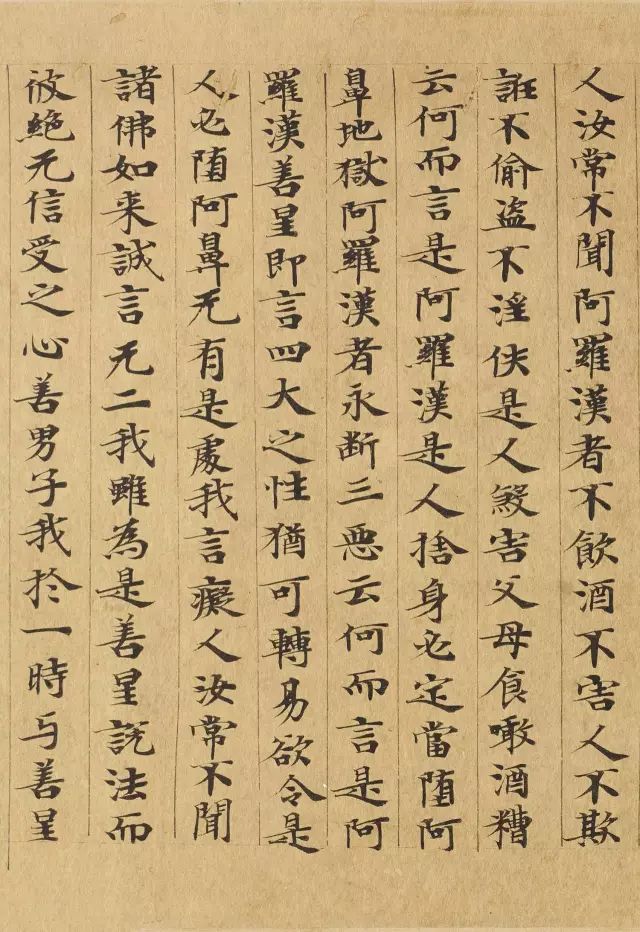 人汝常不聞阿羅漢者不飲酒不害人不欺
誑不偷盗不淫泆是人煞害父母食噉酒糟
云何而言是阿羅漢是人捨身必定當堕阿
鼻地獄阿羅漢者永断三惡云何而言是阿
羅漢善星即言四大之性猶可轉易欲令是
人必堕阿鼻无有是處我言癡人汝常不聞
諸佛如来誠言无二我雖為是善星說法而
彼絶无信受之心善男子我於一時与善星